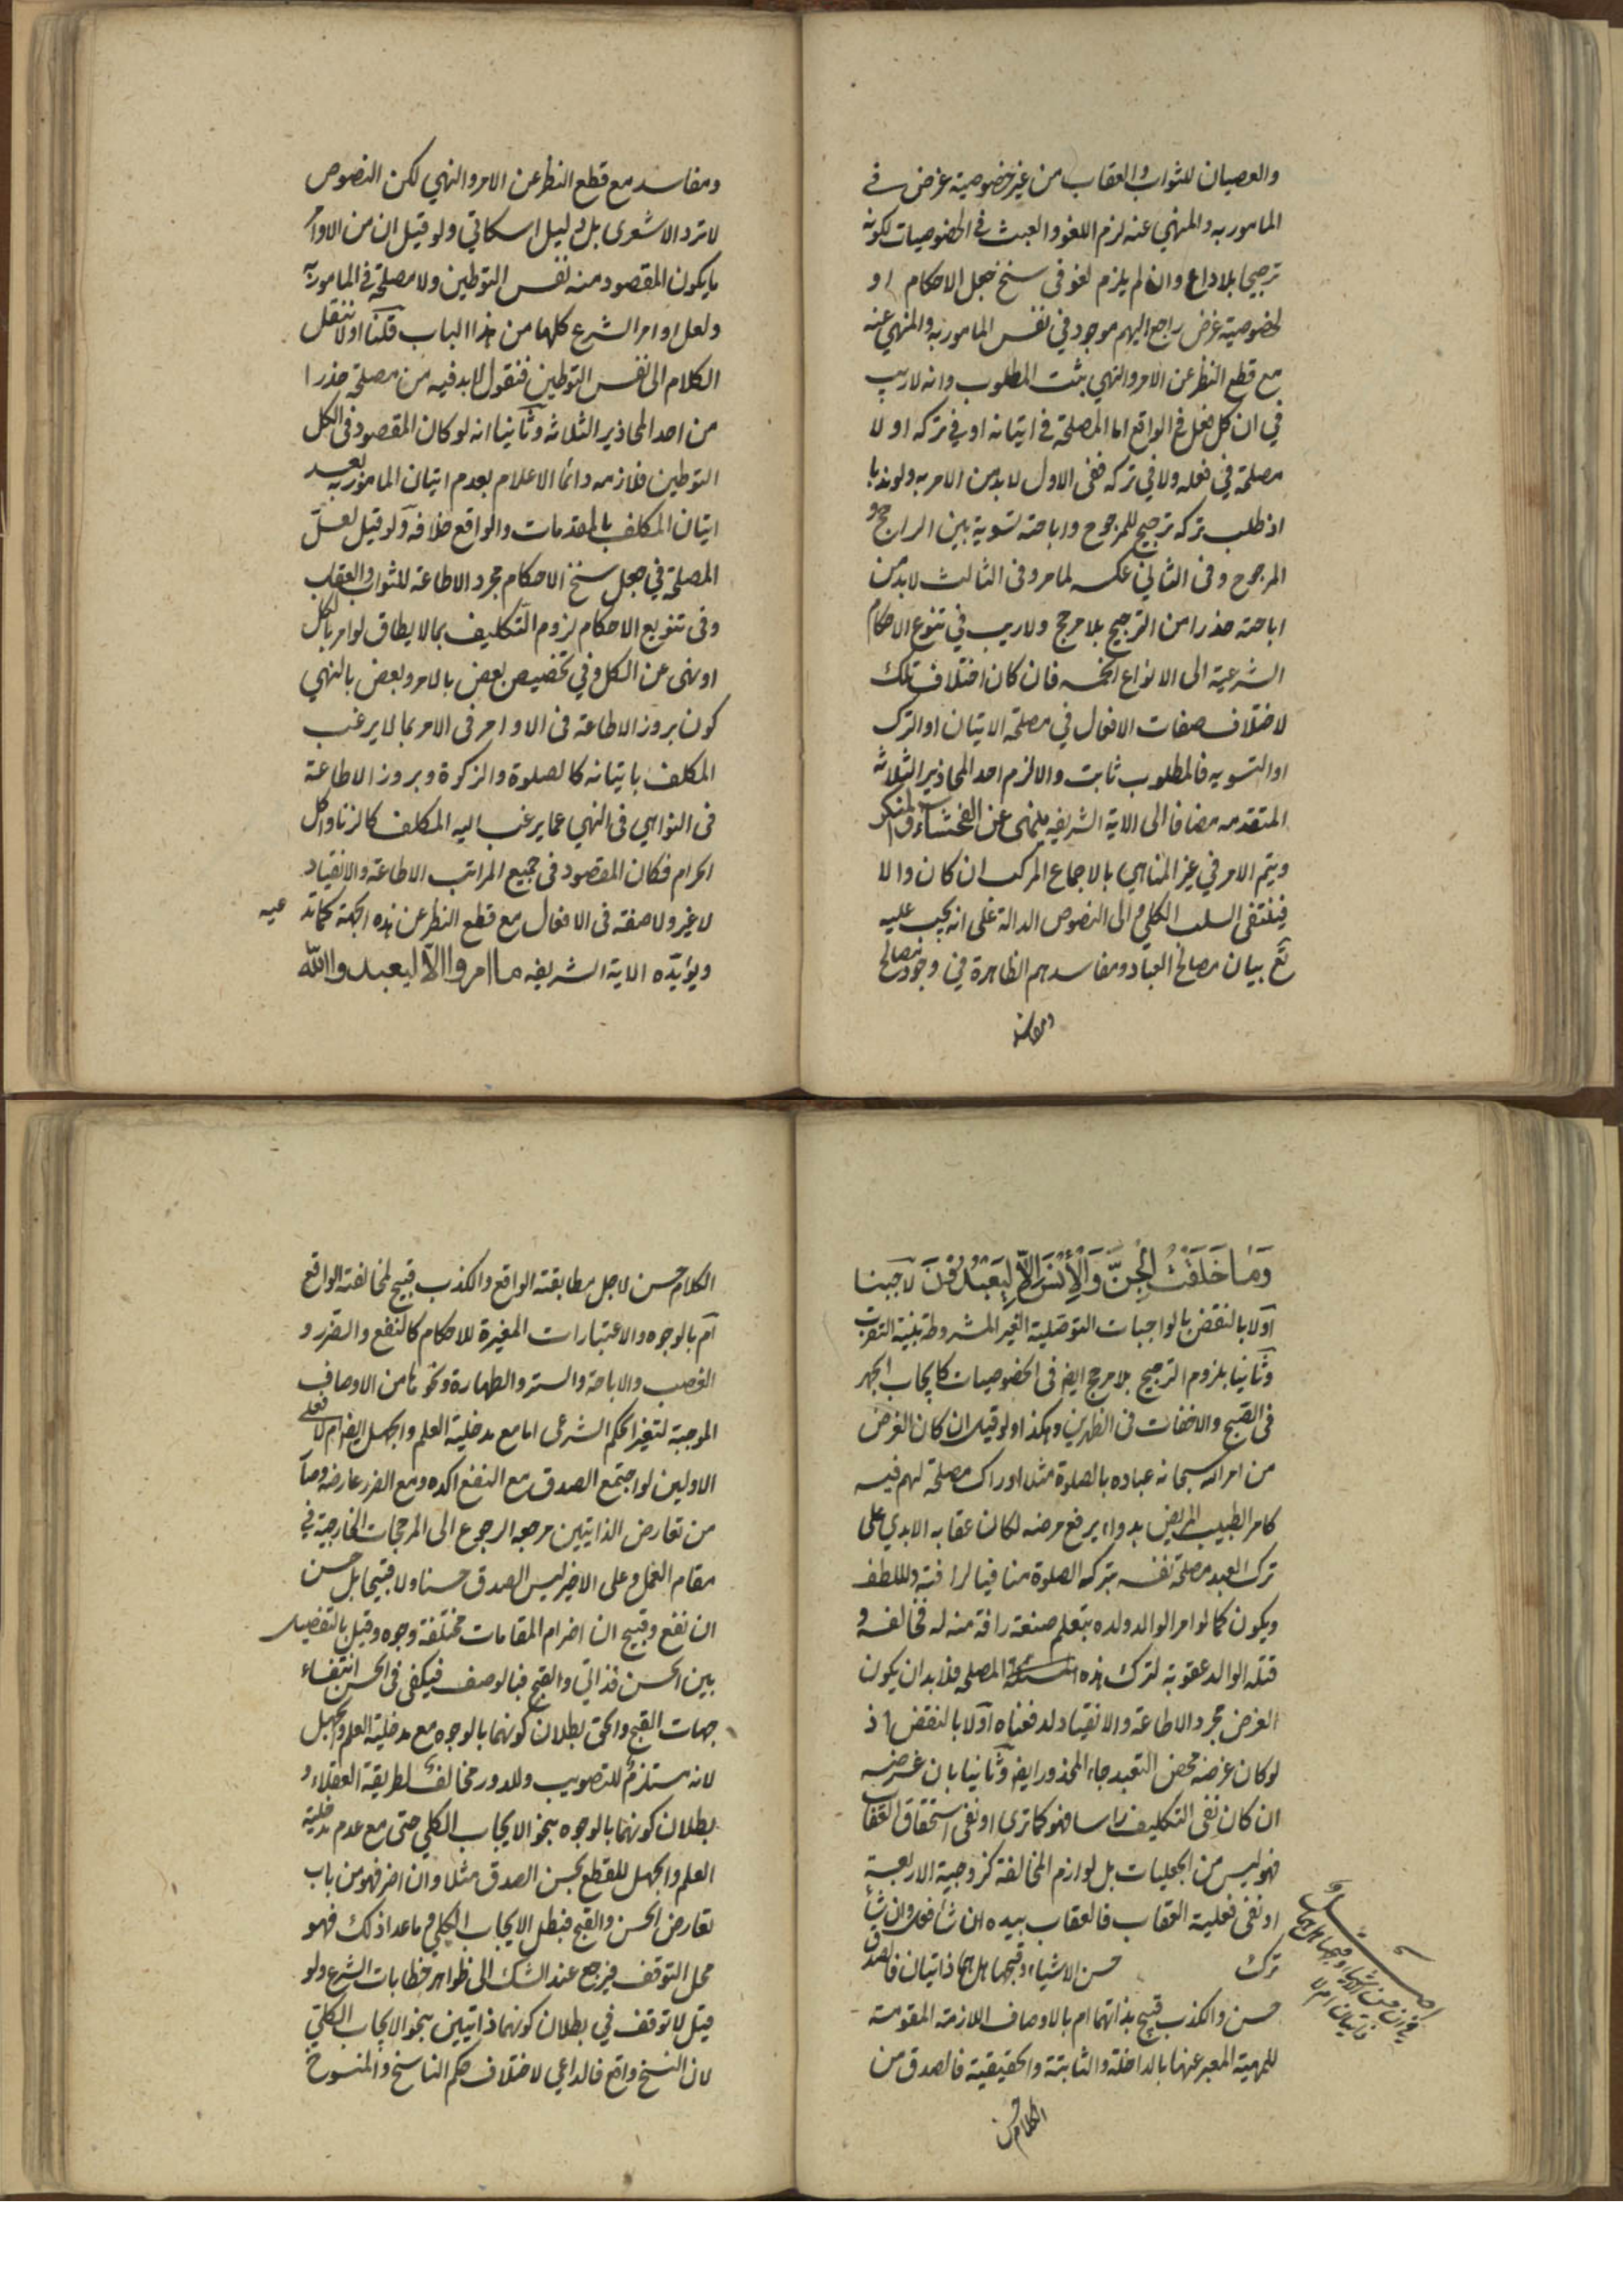 والعصيان للثواب والعقاب من غير خصوصية غرض في
المامور به والمنهي عنه لزم اللغو والعبث في الخصوصيات لكونه
ترجيحا بلا داع وان لم يلزم لغو في سنخ جعل الاحكام او
لخصوصية غرض راجع اليهم موجود في نفس المامور به والمنهي عنه
مع قطع النظر عن الامر والنهي ثبت المطلوب وانه لا ريب
في ان كل فعل في الواقع اما المصلحة في اتيانه او في تركه او لا
مصلحة في فعله ولا في تركه ففي الاول لا بد من الامر به ولو ندبا
اذ طلب تركه ترجيح للمرجوح واباحته تسوية بين الراجح و
المرجوح وفي الثاني عكسه لما مر وفي الثالث لا بد من
اباحته حذرا من الترجيح بلا مرجح ولا ريب في تنوع الاحكام
الشرعية الى الانواع الخمسه فان كان اختلاف تلك
لاختلاف صفات الافعال في مصلحة الاتيان او الترك
او التسويه فالمطلوب ثابت والا لزم احد المحاذير الثلاثة
المتقدمه مضافا الى الاية الشريفه ينهى عن الفحشاء والمنكر
ويتم الامر في غير المناهي بالاجماع المركب ان كان والا
فينتفى السلب الكلي والى النصوص الدالة على انه يجب عليه
تع بيان مصالح العباد ومفاسدهم الظاهرة في وجود مصالح
ومفاسد
ومفاسد مع قطع النظر عن الامر والنهي لكن النصوص
لا ترد الاشعرى بل دليل اسكاتي ولو قيل ان من الاوامر
ما يكون المقصود منه نفس التوطين ولا مصلحة في المامور به
ولعل اوامر الشرع كلها من هذا الباب قلنا اولا ننقل
الكلام الى نفس التوطين فنقول لا بد فيه من مصلحة حذرا
من احد المحاذير الثلاثه وثانيا انه لو كان المقصود في الكل
التوطين فلازمه دائما الاعلام بعدم اتيان المامور به بعد
اتيان المكلف بالمقدمات والواقع خلافه ولو قيل لعل
المصلحة في جعل سنخ الاحكام مجرد الاطاعة للثواب والعقاب
وفي تنويع الاحكام لزوم التكليف بما لا يطاق لو امر بالكل
او نهى عن الكل وفي تخصيص بعض بالامر وبعض بالنهي
كون بروز الاطاعة في الاوامر في الامر بما لا يرغب
المكلف باتيانه كالصلوة والزكوة وبروز الاطاعة
في النواهي في النهي عما يرغب اليه المكلف كالزنا واكل
الحرام فكان المقصود في جميع المراتب الاطاعة والانقياد
لا غير ولا صفة في الافعال مع قطع النظر عن هذه الجهة كما تد عيه
ويؤيده الاية الشريفه ما امروا الا ليعبدوا الله
وَمَا خَلَقْتُ الْجِنَّ وَالْأِنْسَ إِلاّ لِيَعْبُدُونَ لاجبنا
اولا بالنقض بالواجبات التوصلية الغير المشروطة بنية التقرب
وثانيا بلزوم الترجيح بلا مرجح ايض في الخصوصيات كايجاب الجهر
في الصبح والاخفات في الظهرين وهكذا ولو قيل ان كان الغرض
من امر الله سبحانه عباده بالصلوة مثلا ادراك مصلحة لهم فيه
كامر الطبيب المريض بدواء يرفع مرضه لكان عقابه الابدي على
ترك العبد مصلحة نفسه بتركه الصلوة منافيا لرافته وللطف
ويكون كما لو امر الوالد ولده بتعلم صنعة رافة منه له فخالفه و
قتله الوالد عقوبة لترك هذه المصلحه فلا بد ان يكون
الغرض مجرد الاطاعة والانقياد لدفعناه اولا بالنقض اذ
لو كان غرضه محض التعبد جاء المحذور ايض وثانيا بان غرضه
ان كان نفى التكليف راسا فهو كما ترى او نفى استحقاق العقاب
فهو ليس من الجعليات بل لوازم المخالفة كزوجية الاربعة
او نفى فعلية العقاب فالعقاب بيده ان شاء فعل وان شاء
ترك حسن الاشياء وقبحها هل هما ذاتيان فالصدق
حسن والكذب قبيح بذاتهما ام بالاوصاف اللازمة المقومة
للمهية المعبر عنها بالداخلة والثابتة والحقيقية فالصدق من
الكلام حسن
في ان حسن الاشياء وقبحها هل هما
ذاتيان ام لا
الكلام حسن لاجل مطابقته الواقع والكذب قبيح لمخالفته الواقع
ام بالوجوه والاعتبارات المغيرة للاحكام كالنفع والضرر و
الغصب والاباحة والستر والطهارة ونحوها من الاوصاف
الموجبة لتغير الحكم الشرعى اما مع مدخلية العلم والجهل ايض ام لا فعلى
الاولين لو اجتمع الصدق مع النفع اكده ومع الضرر عارضه وصآ
من تعارض الذاتيين مرجعه الرجوع الى المرجحات الخارجية في
مقام العمل وعلى الاخير ليس الصدق حسنا ولا قبيحا بل حسن
ان نفع وقبيح ان اضر ام المقامات مختلفة وجوه وقيل بالتفصيل
بين الحسن فذاتي والقبح فبالوصف فيكفى في الحسن انتفاء
جهات القبح والحق بطلان كونهما بالوجوه مع مدخلية العلم والجهل
لانه مستلزم للتصويب وللدور مخالف لطريقة العقلاء و
بطلان كونهما بالوجوه بنحو الايجاب الكلي حتى مع عدم مدخلية
العلم والجهل للقطع بحسن الصدق مثلا وان اضر فهو من باب
تعارض الحسن والقبح فبطل الايجاب الكلي وما عدا ذلك فهو
محل التوقف فيرجع عند الشك الى ظواهر خطابات الشرع ولو
قيل لا توقف في بطلان كونهما ذاتيين بنحو الايجاب الكلي
لان النسخ واقع فالداعي لاختلاف حكم الناسخ والمنسوخ